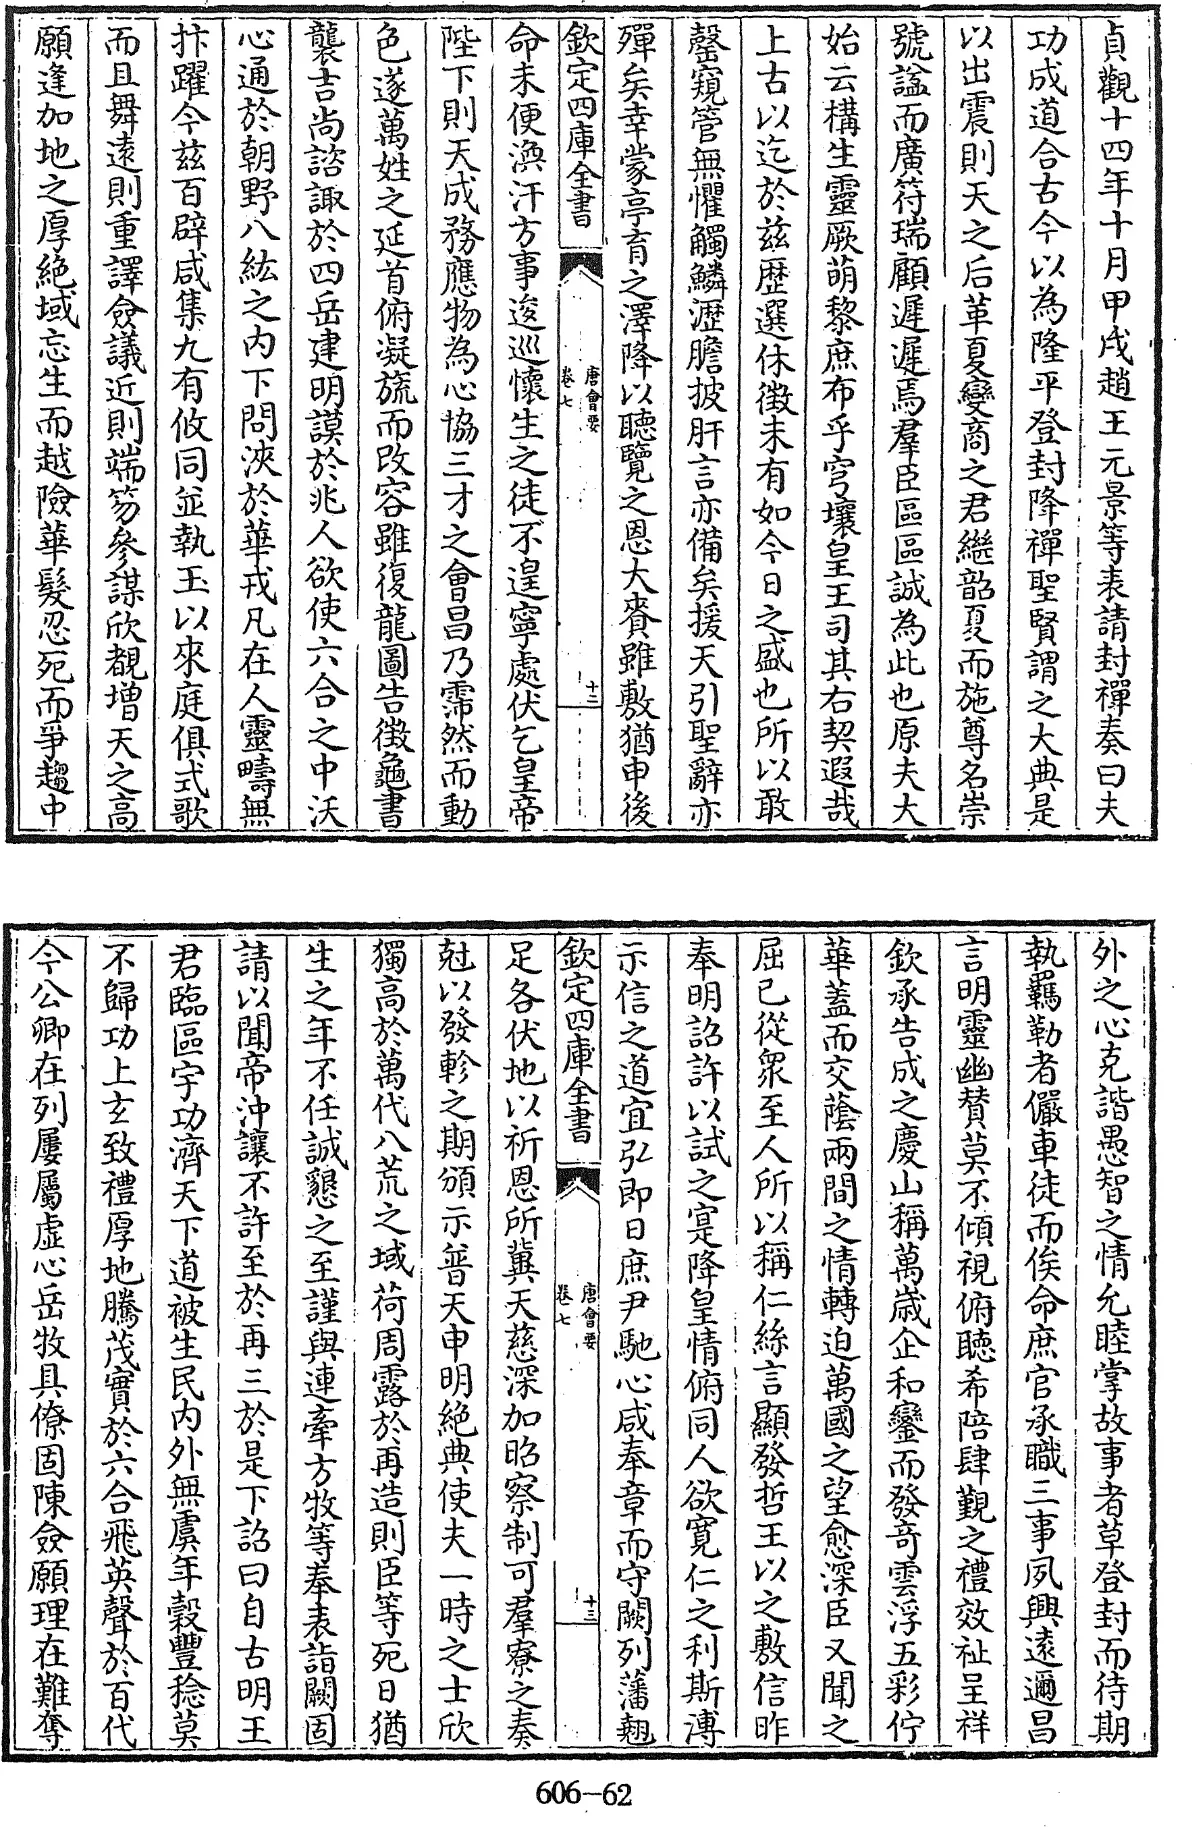 貞觀十四年十月甲戌趙王元景等表請封禪奏曰夫
功成道合古今以為隆平登封降禪聖賢謂之大典是
以出震則天之后革夏變商之君繼韶夏而施尊名崇
號諡而廣符瑞顧遲遲焉羣臣區區誠為此也原夫大
始云構生靈厥萌黎庶布乎穹壤皇王司其右契遐哉
上古以迄於兹歷選休徴未有如今日之盛也所以敢
罄窺管無懼觸鱗瀝膽披肝言亦備矣援天引聖辭亦
殫矣幸蒙亭育之澤降以聽覽之恩大賚雖敷猶申後
欽定四庫全書
唐會要
卷七
十二
命未便渙汗方事逡巡懷生之徒不遑寧處伏乞皇帝
陛下則天成務應物為心協三才之會昌乃霈然而動
色遂萬姓之延首俯凝旒而改容雖復龍圖告徴龜書
襲吉尚諮諏於四岳建明謨於兆人欲使六合之中沃
心通於朝野八紘之内下問浹於華戎凡在人靈疇無
抃躍今兹百辟咸集九有攸同並執玉以來庭俱式歌
而且舞遠則重譯僉議近則端笏參謀欣覩增天之高
願逢加地之厚絶域忘生而越險華髮忍死而爭趨中
外之心克諧愚智之情允睦掌故事者草登封而待期
執羈勒者儼車徒而俟命庶官承職三事夙興遠邇昌
言明靈幽賛莫不傾視俯聽希陪肆覲之禮效祉呈祥
欽承告成之慶山稱萬歳企和鑾而發奇雲浮五彩佇
華蓋而交蔭兩間之情轉迫萬國之望愈深臣又聞之
屈已從衆至人所以稱仁絲言顯發哲王以之敷信昨
奉明詔許以試之寔降皇情俯同人欲寛仁之利斯溥
示信之道宜弘即日庶尹馳心咸奉章而守闕列藩翹
欽定四庫全書
唐會要
卷七
十三
足各伏地以祈恩所冀天慈深加昭察制可羣寮之奏
尅以發軫之期頒示普天申明絶典使夫一時之士欣
獨高於萬代八荒之域荷周露於再造則臣等死日猶
生之年不任誠懇之至謹與連率方牧等奉表詣闕固
請以聞帝沖讓不許至於再三於是下詔曰自古明王
君臨區宇功濟天下道被生民内外無虞年穀豐稔莫
不歸功上玄致禮厚地騰茂實於六合飛英聲於百代
今公卿在列屢屬虚心岳牧具僚固陳僉願理在難奪
606-62